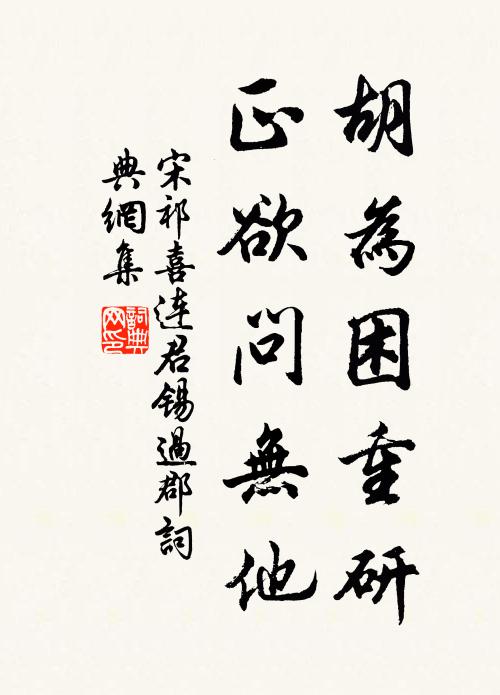 胡為困重研
正欲問無他
宋祁喜連君錫過郡詞
典網集
詞典
网印